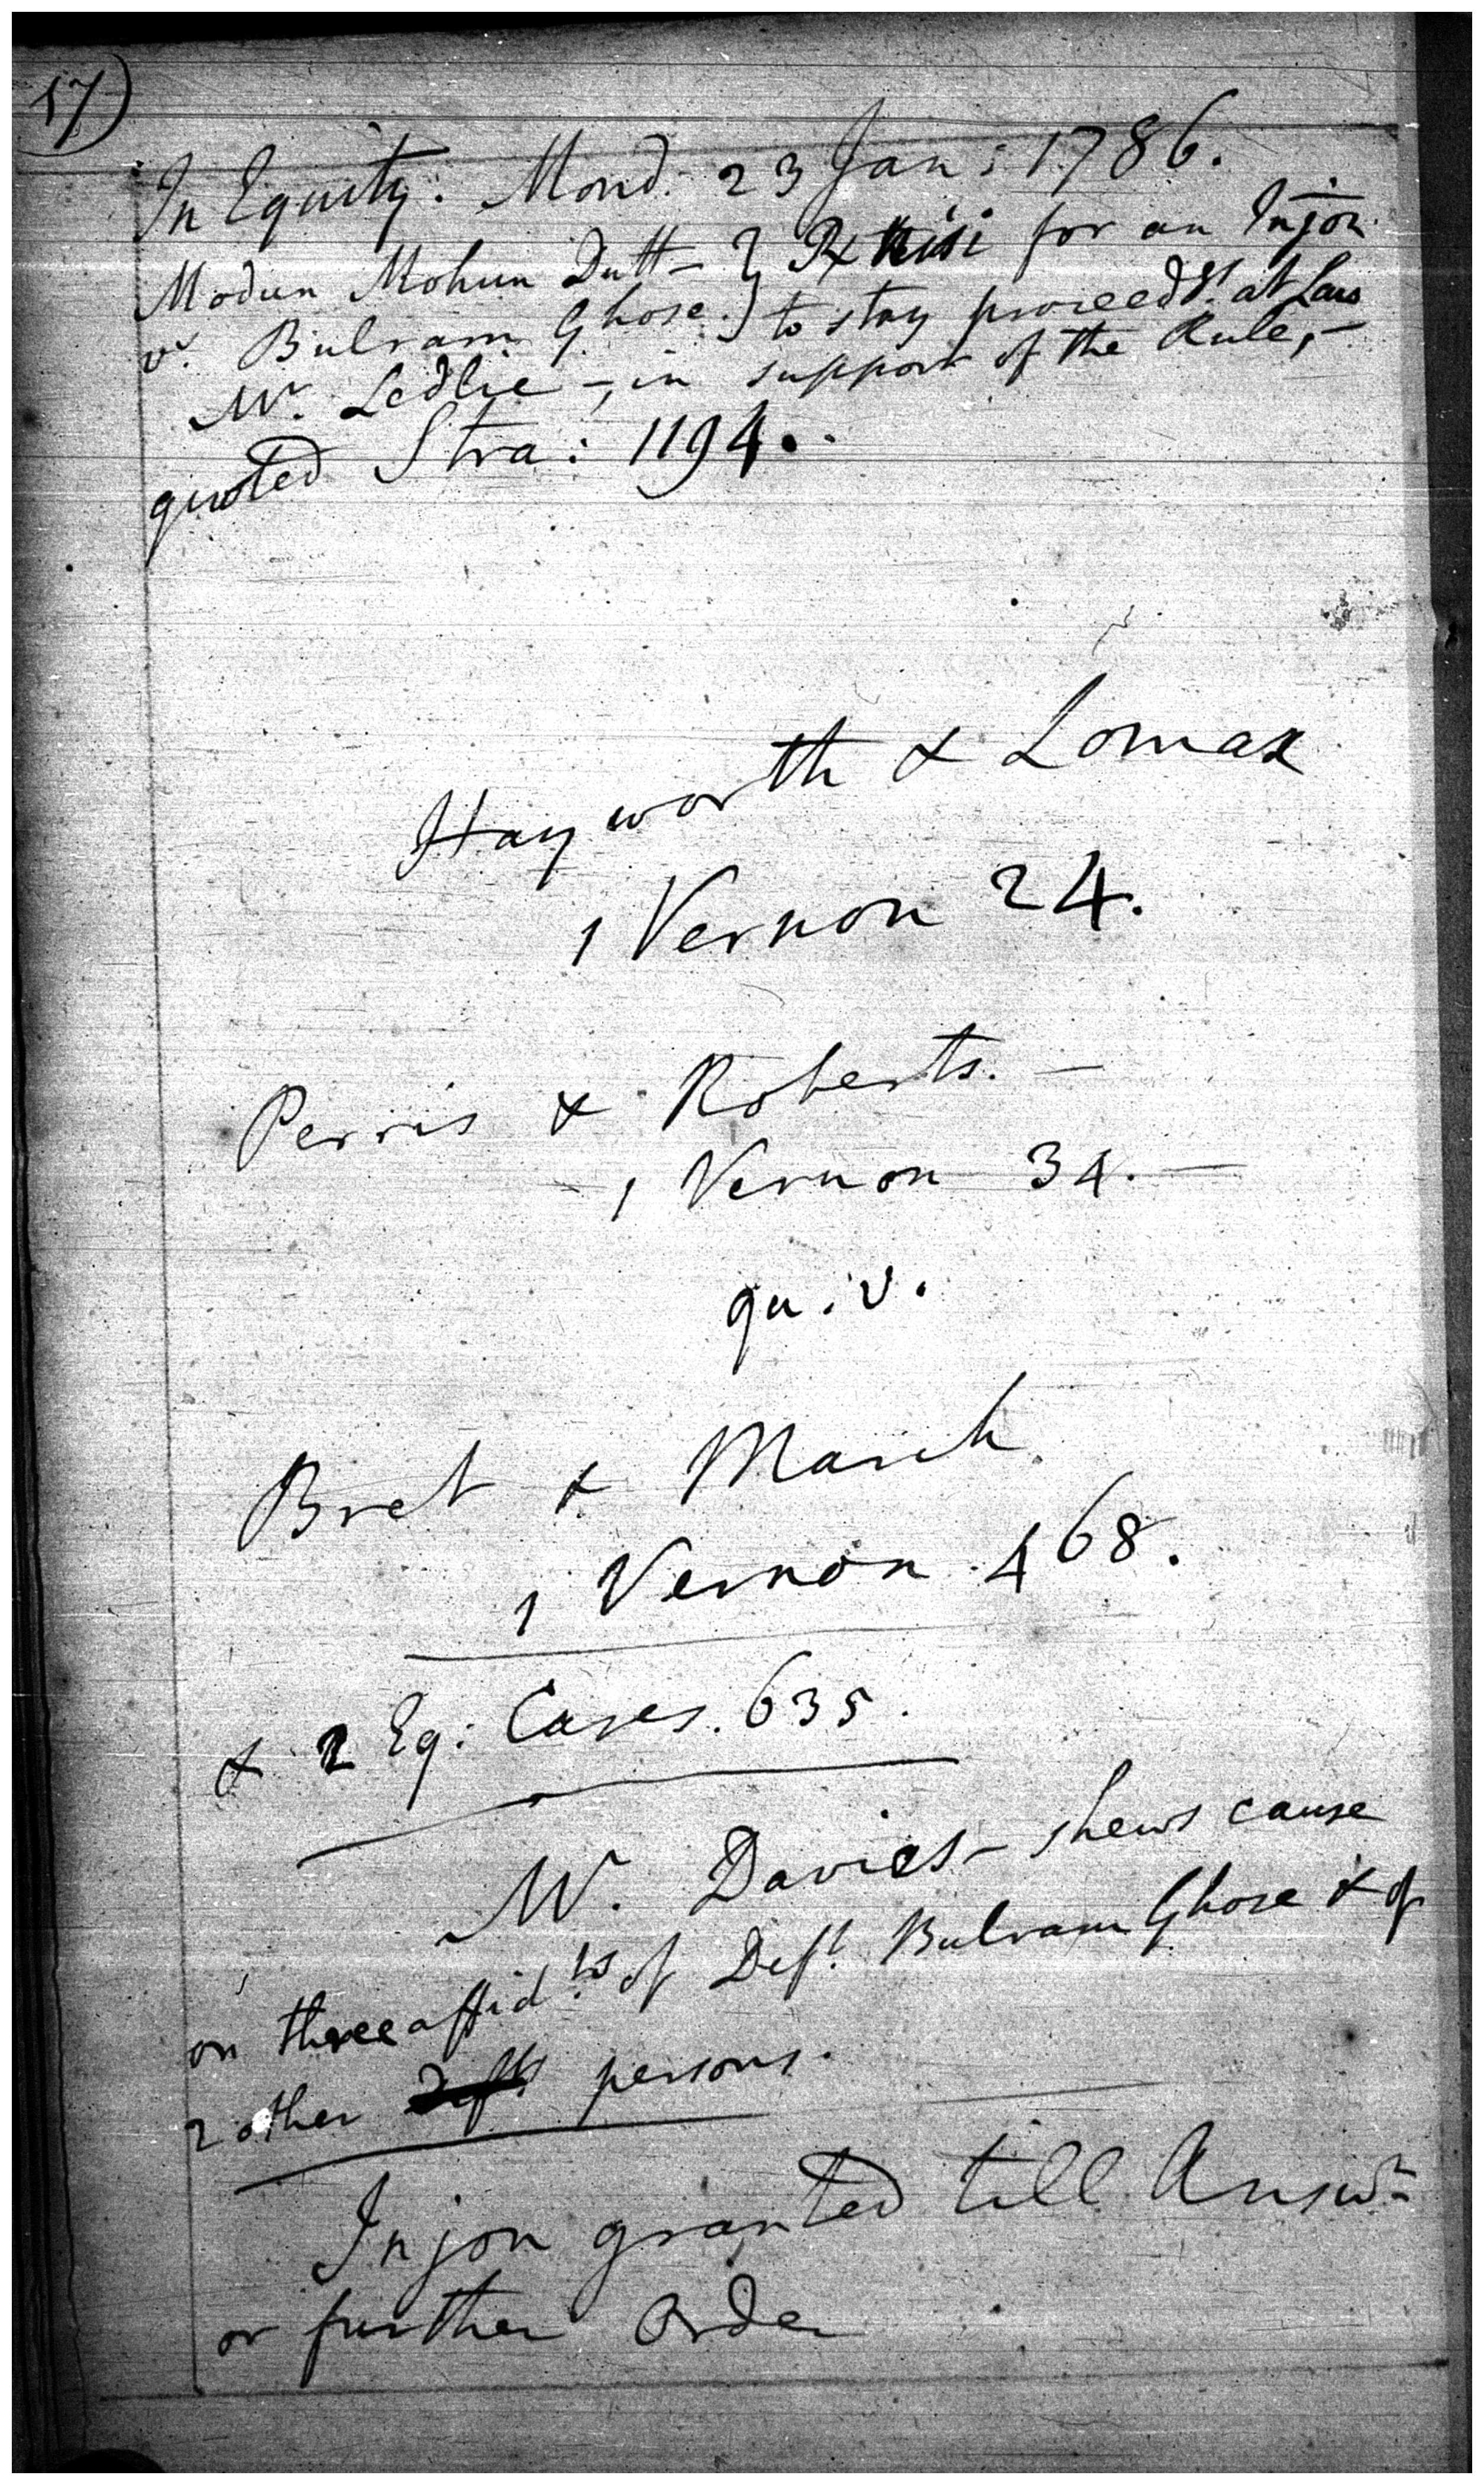 17)
In Equity. Mond. 23 Jan: 1786.
Modun Mohun Dutt - } Rx nisi for an Injon
v. Bulram Ghose. } to stay proceedgs. at Law
Mr. Ledlie -, in support of the Rule, -
quoted Stra: 1194.
Hayworth & Lomax
1 Vernon 24.
Perris & Roberts. -
1 Vernon 34. -
qu. v.
Bret & March
1 Vernon 468.
& 2 Eq: Cases. 635.
Mr. Davies - shews cause
on three affidts. of Deft. Bulram Ghose & of
2 other Defts persons.
Injon granted till Answr.
or further Order